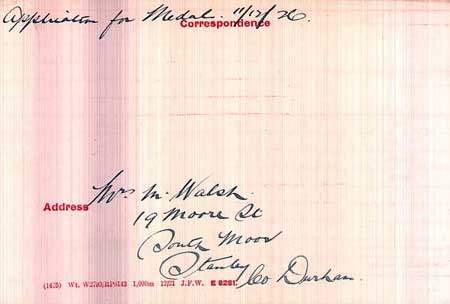 Application for Medal. 11/12/26.
Correspondence
Address
Mrs M. Walsh.
19 Moore St
South Moor
Stanley Co Durham.
(1475) Wt. W2793/RP6142 1,000m 12/21 J.F.W. E 8281.